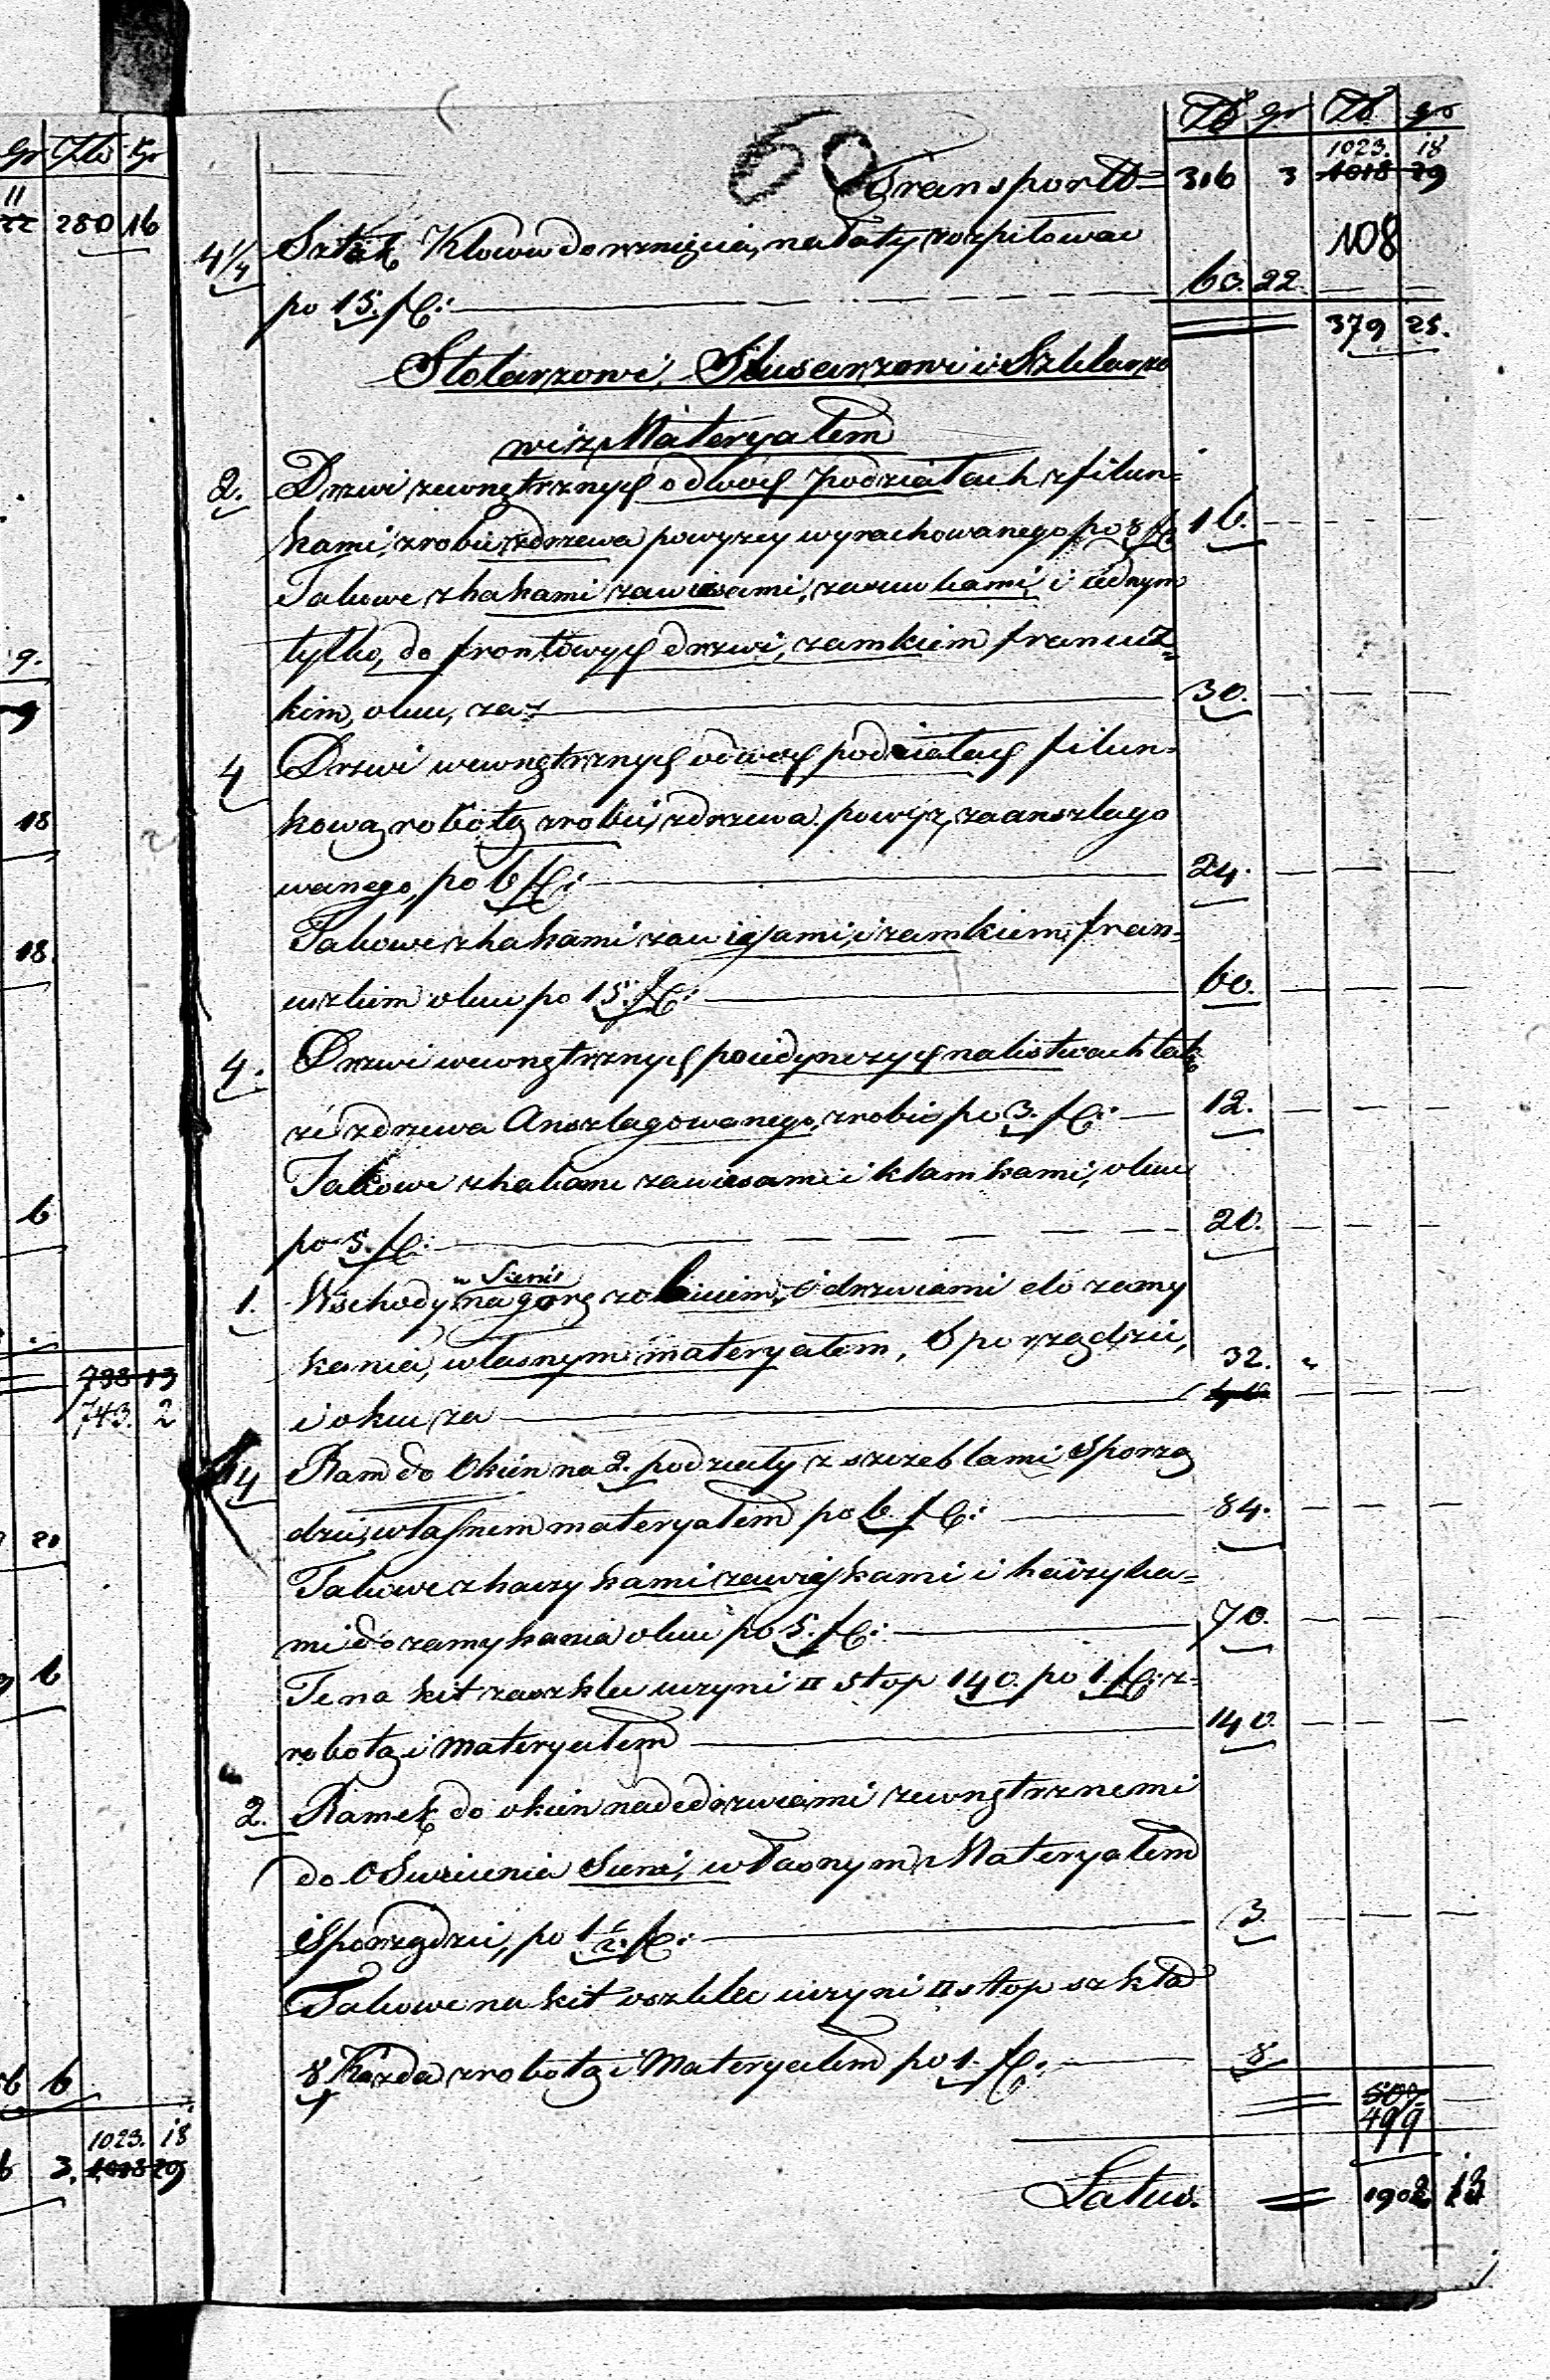 gr Złł gr
11
22 280 16
9.
18
18.
6
738 13
743. 2
20
6
6
1023. 18
3. 1018 29
60
Złł gr Złł gr
1023. 18
Transport = 316 3 1018 29
108
4 1/4 Sztuk Klocow do rznięcia, na łaty rozpiłować
po 15. fl: 63. 22.
379 25.
Stolarzowi, Slusarzowi i Szklarzo
wi z Materyałem
2. Drzwi zewnętrznych o dwóch podziałach z filun=
kami, zrobić z drzewa powyzey wyrachowanego po 8 fl 16.
Takowe z hakami zawiasami, zasuwkami, i iednym
tylko, do frontowych drzwi, zamkiem francuz=
kim, okuć, za 30.
4 Drzwi wewnętrznych o dwoch podziałach filun=
kową robotą zrobić, z drzewa powyż, zaanszlago
wanego, po 6 fl: 24.
Takowe z hakami zawiasami, i zamkiem fran=
cuzkim okuć po 15. fl: 60.
4. Drzwi wewnętrznych poiedynczych na listwach tak
ze z drzewa Anszlagowanego, zrobić po 3. fl: 12.
Takowe z hakami zawiasami i klamkami, okuć
po 5. fl: 20.
w Sieni
1. Wschody na gorę z obiciem, i drzwiami do zamy
kania, własnym materyałem, Sporządzić, 32.
i okuć, za
14 Ram do Okien na 2. podziały z szczeblami Sporzą
dzić, własnem materyałem po 6. fl: 84.
Takowe z haczykami zawiaskami i haczyka=
mi do zamykania okuć po 5. fl: 70.
Te na kit zaszklić uczyni □ stop 140. po 1. fl: z=
robotą i materyałem 140.
2. Ramek do okien nadedrzwiami zewnętrznemi
do Oswiecenia Sieni, własnym Materyałem
Sporządzić, po 1 1/2. fl: 3.
Takowe na kit oszklić uczyni □ stop szkła
8 Każda z robotą i Materyałem po 1. fl: 8
507
499
Latus. 1902 13